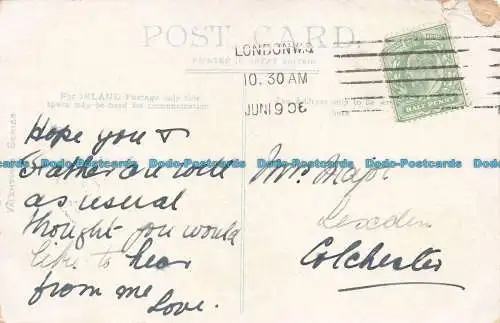 POST CARD.
PRINTED IN GREAT BRITAIN
LONDON.W.
10.30 AM
JUN 19 06
HALF PENNY
For INLAND Postage only this
space may be used for communication
The Address only to be
here.
VALENTINE'S SERIES
Hope you &
Father are well
as usual
thought you would
like to hear
from me
Love.
Mrs
Lexden
Colchester
Dodo-Postcards Dodo-Postcards Dodo-Postcards Dodo-Postcards